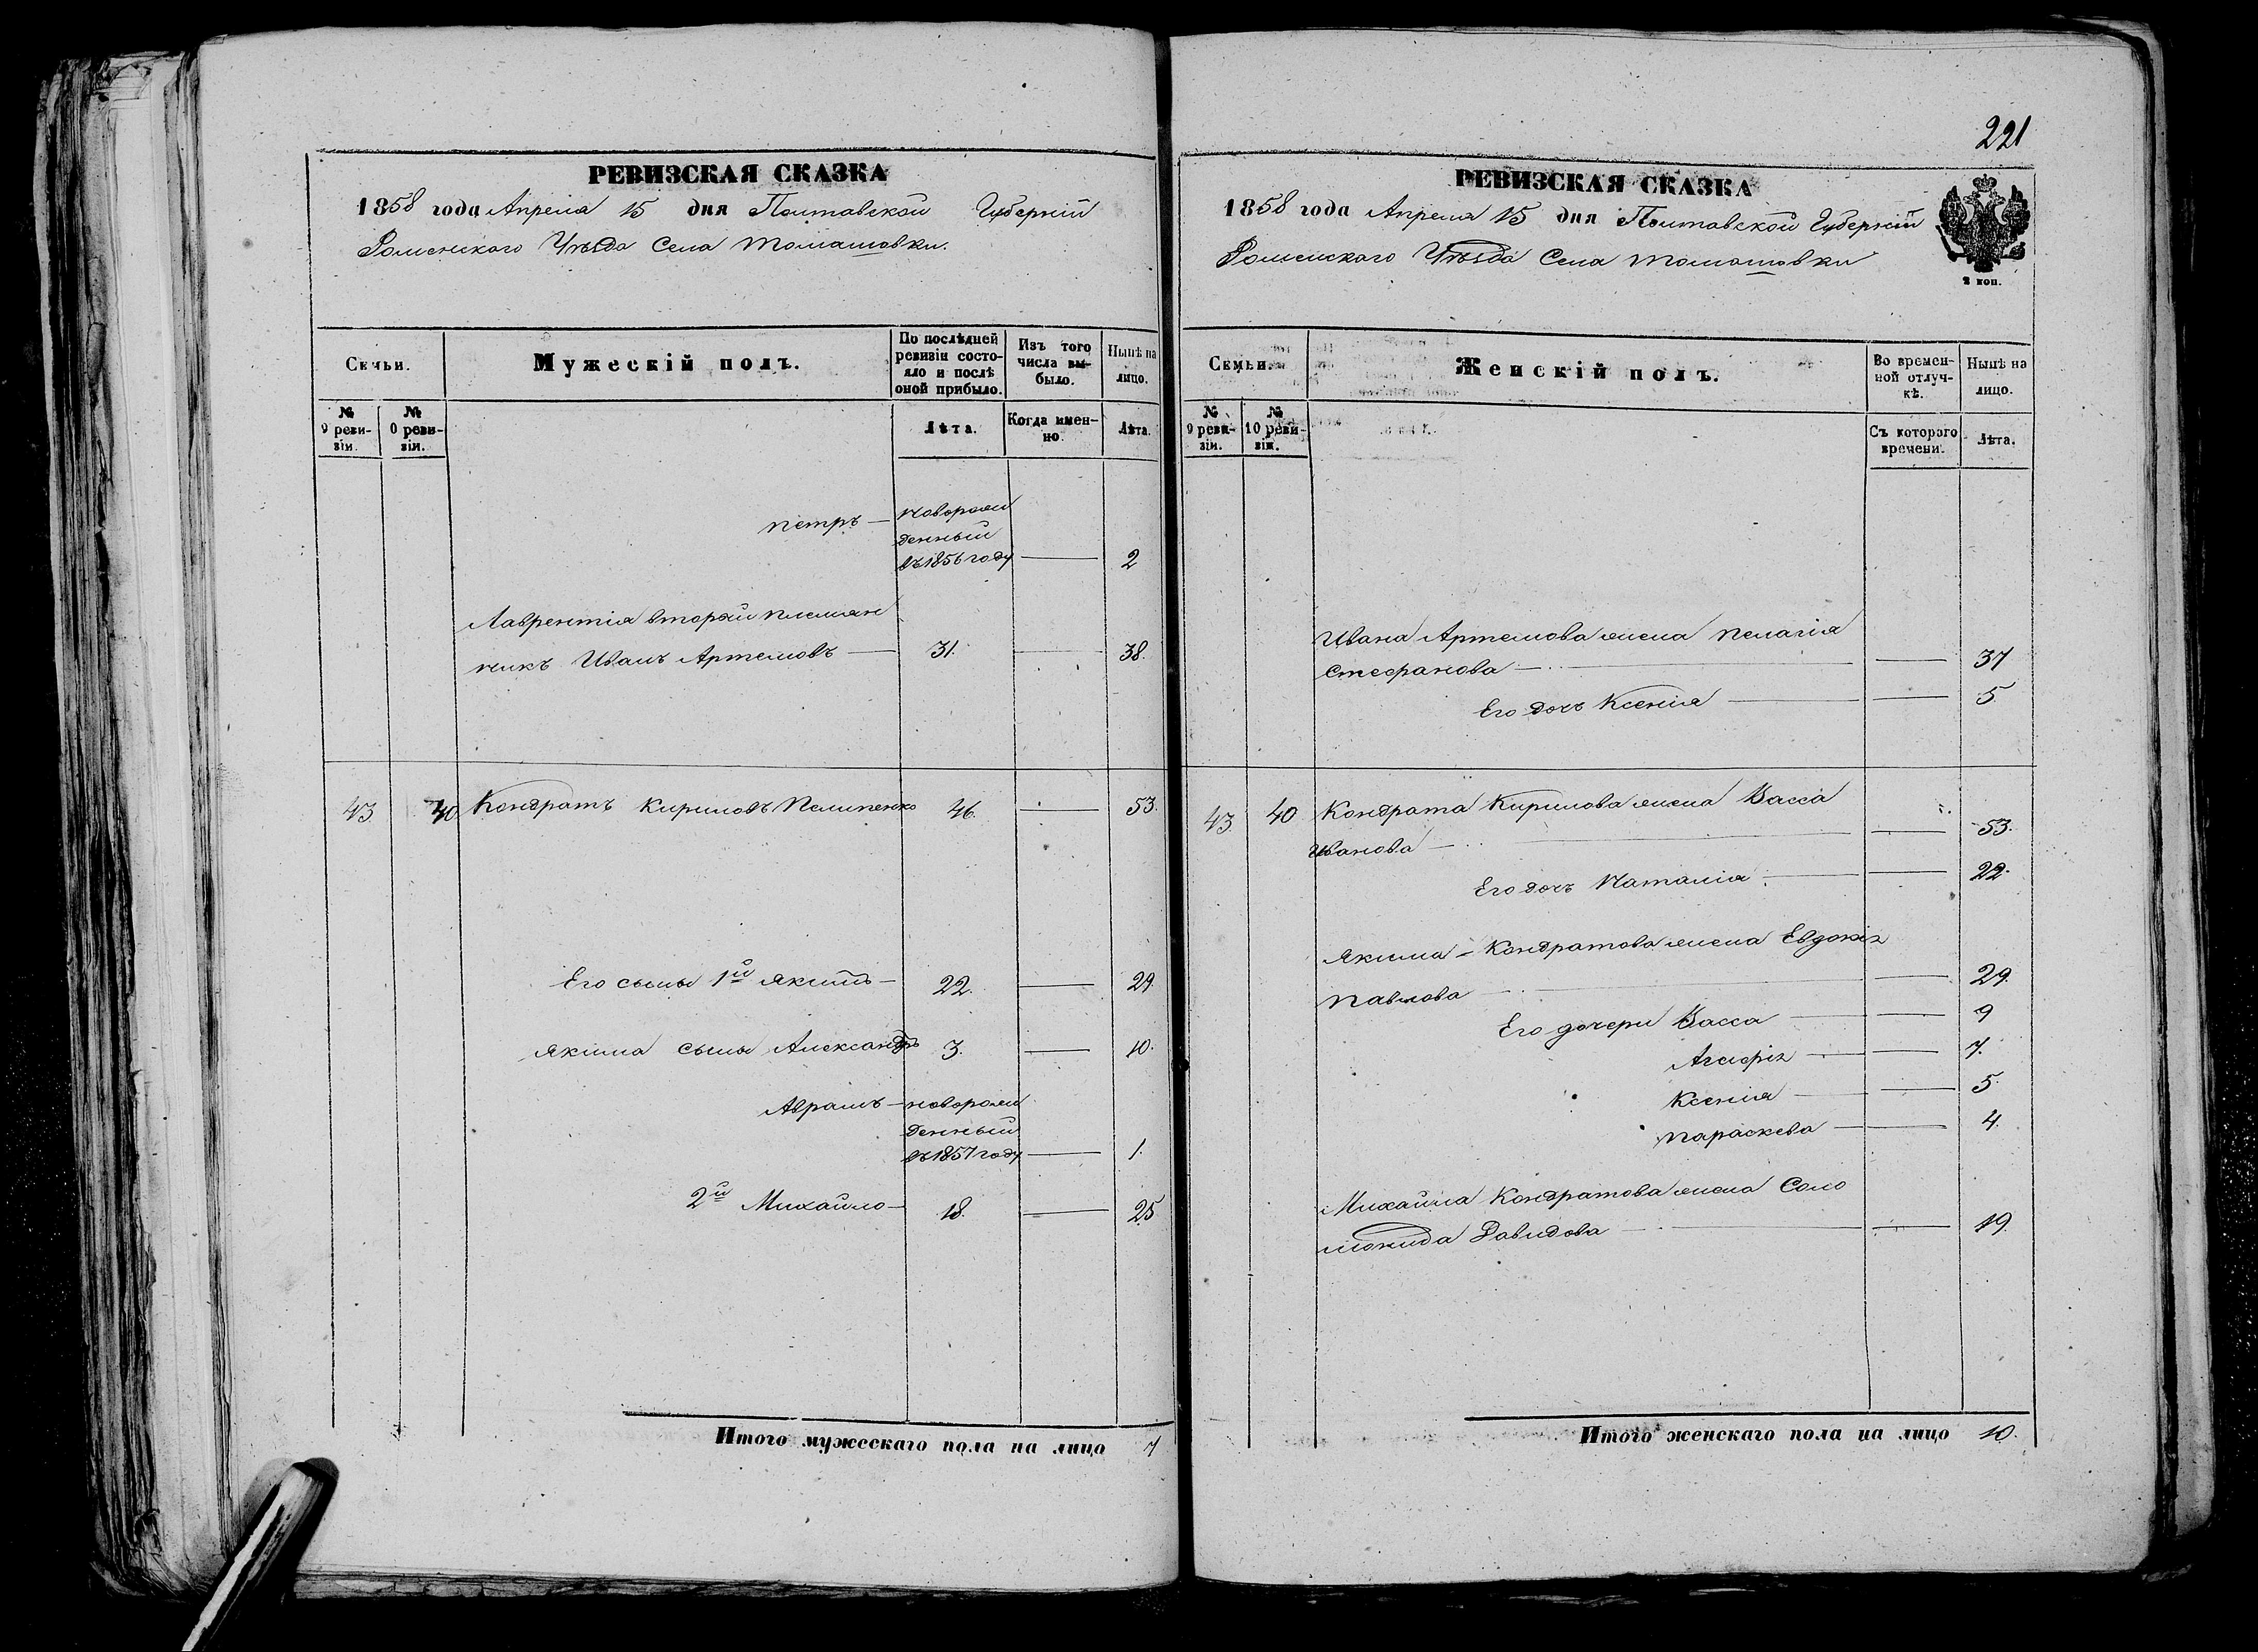 РЕВИЗСКАЯ СКАЗКА
1858 года Апреля 15 дня Полтавской Губерніи
Роменского Уѣзда Села Томашовки.
Семьи.
Мужескій полъ.
По послѣдней ревизіи состояло и послѣ оной прибыло.
Изъ того числа выбыло.
Нынѣ на лицо.
№ 9 ревизіи.
№ 0 ревизіи.
Лѣта.
Когда именно.
Лѣта.
Петръ — новорож
денный
въ 1856 году — 2
Лаврентія вторый племян
никъ Иванъ Артемовъ — 31. — 38.
43. 40 Кондратъ Кириловъ Пелипенко 46. — 53.
Его сыны 1й Якимъ — 22. — 29
Якима сыны Александръ 3. — 10.
Аврамъ — новорож
денный
въ 1857 году — 1.
2й Михайло — 18. — 25
Итого мужескаго пола на лицо 7
221
РЕВИЗСКАЯ СКАЗКА
1858 года Апреля 15 дня Полтавской Губерніи
Роменского Уѣзда Села Томашовки
2 коп.
Семьи.
Женскій полъ.
Во временной отлучкѣ.
Нынѣ на лицо.
№ 9 ревизіи.
№ 10 ревизіи.
Съ котораго времени.
Лѣта.
Ивана Артемова жена Пелагія
Стефанова — — 37
Его дочь Ксенія — — 5.
43. 40 Кондрата Кирилова жена Васса
Иванова — — 53.
Его дочь Наталія — — 22.
Якима Кондратова жена Евдокія
Павлова — — 29.
Его дочери Васса — — 9
Агафія — — 7.
Ксенія — — 5.
Параскева — — 4.
Михайла Кондратова жена Соло
монида Давидова — — 19.
Итого женскаго пола на лицо 10.